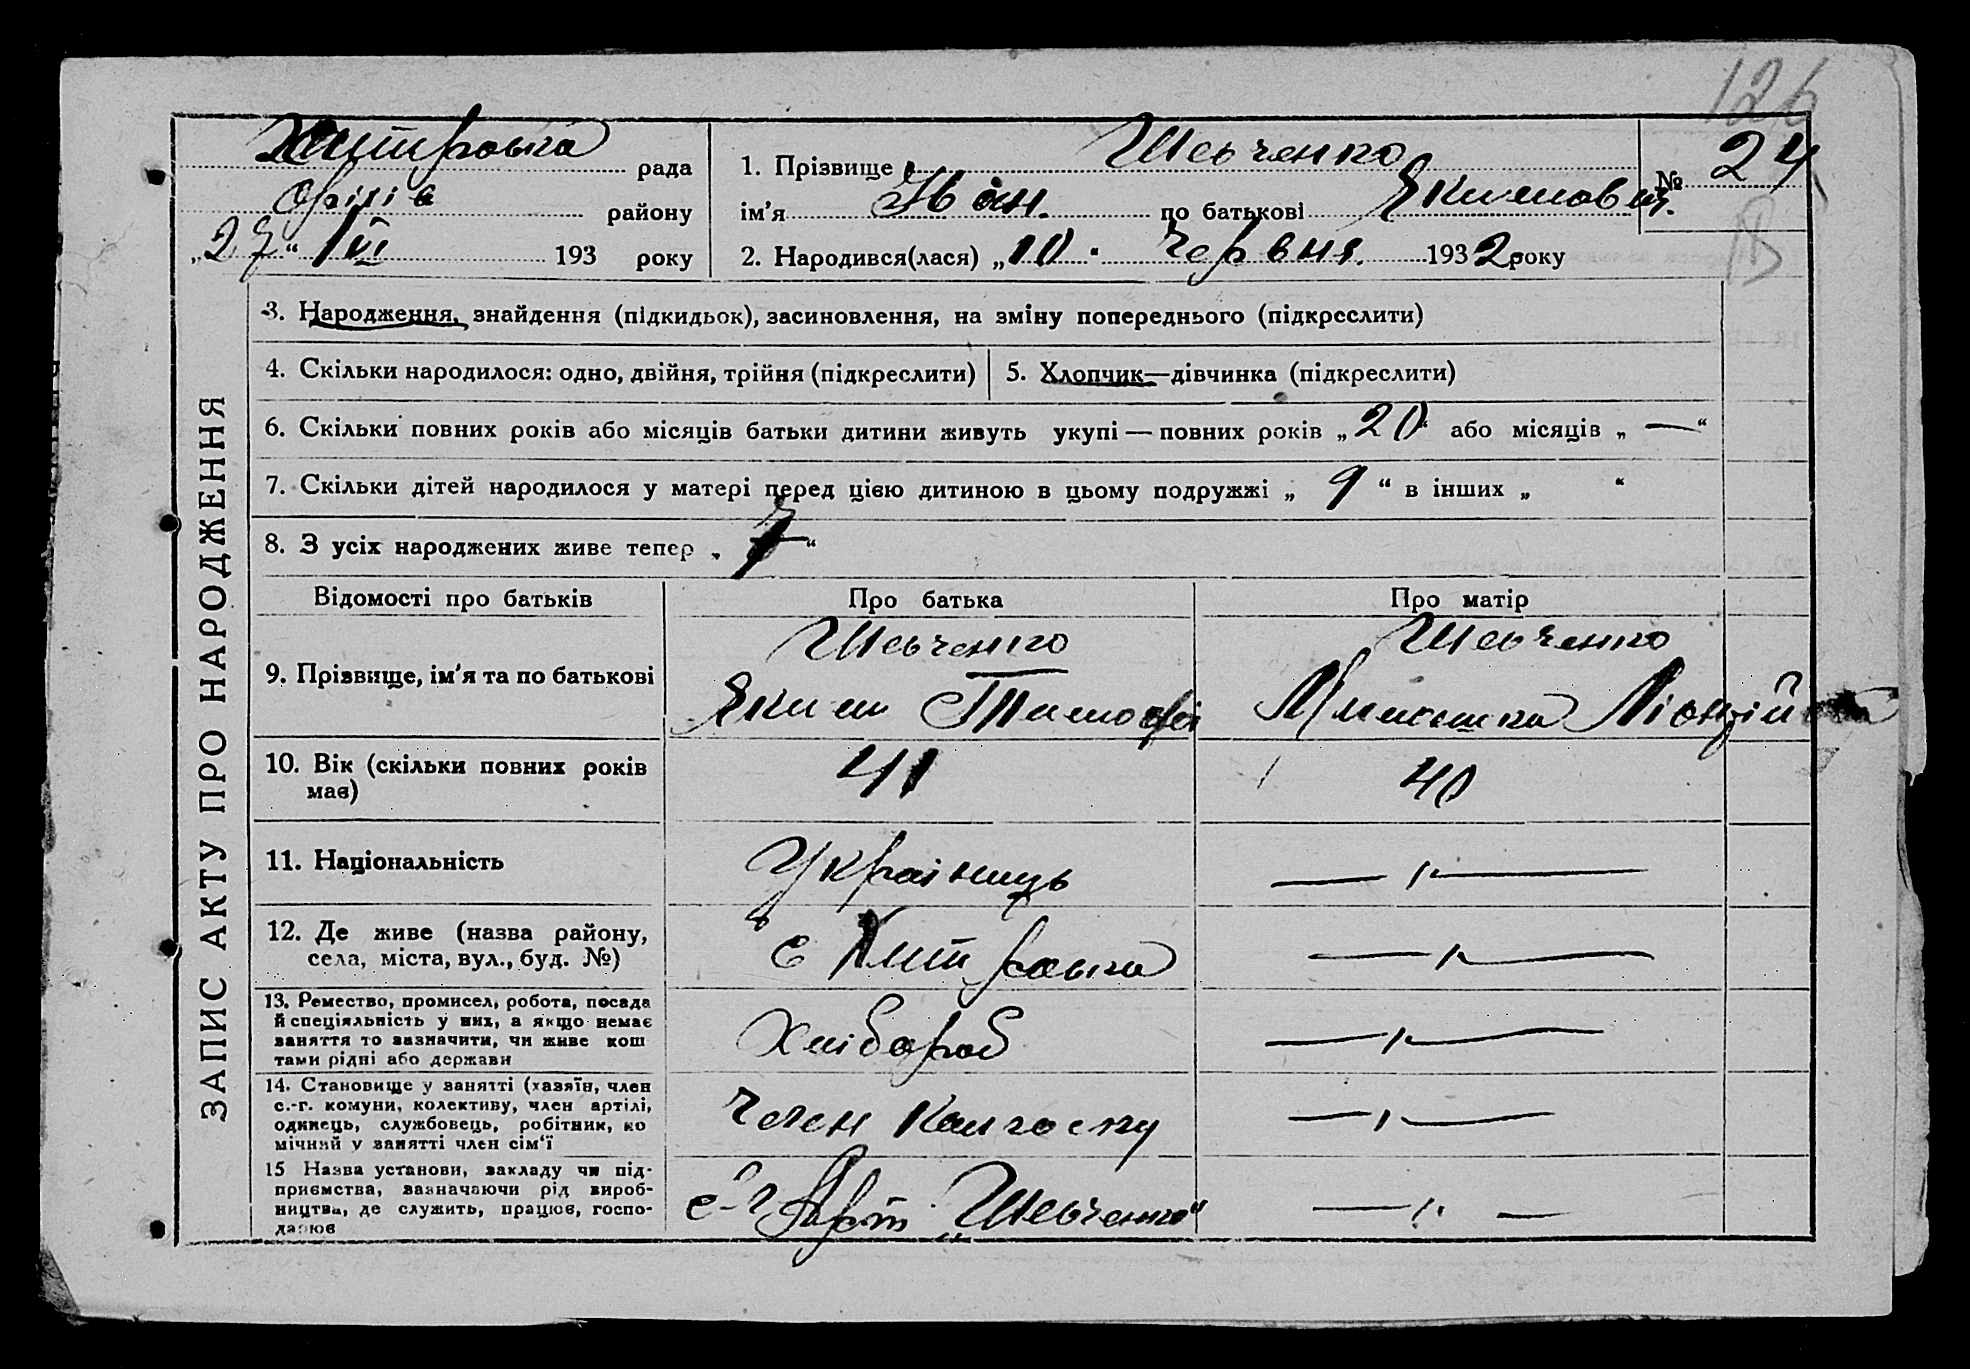 126
Хитровка рада
Оріхів району
„27“ VI 193 року
1. Прізвище Шевченко
№ 24
ім'я Іван. по батькові Якимович.
2. Народився(лася) „10“ Червня 1932 року
3. Народження, знайдення (підкидьок), засиновлення, на зміну попереднього (підкреслити)
4. Скільки народилося: одно, двійня, трійня (підкреслити)
5. Хлопчик—дівчинка (підкреслити)
6. Скільки повних років або місяців батьки дитини живуть укупі — повних років „20“ або місяців „—“
7. Скільки дітей народилося у матері перед цією дитиною в цьому подружжі „9“ в інших „ “
8. З усіх народжених живе тепер „7“
ЗАПИС АКТУ ПРО НАРОДЖЕННЯ
Відомості про батьків
Про батька
Про матір
9. Прізвище, ім'я та по батькові
Шевченко
Яким Тимофі
Шевченко
10. Вік (скільки повних років
має)
41
40
11. Національність
Українець
—〃—
12. Де живе (назва району,
села, міста, вул., буд. №)
с Хитровка
—〃—
13. Ремество, промисел, робота, посада
й спеціяльність у них, а якщо немає
заняття то зазначити, чи живе кош
тами рідні або держави
Хлібороб
—〃—
14. Становище у занятті (хазяїн, член
с.-г. комуни, колективу, член артілі,
одинець, службовець, робітник, по
мічний у занятті член сім'ї
Член Колгоспу
—〃—
15 Назва установи, закладу чи під-
приємства, зазначаючи рід вироб-
ництва, де служить, працює, госпо-
дарює
с-г Арт „Шевченко“
—〃—